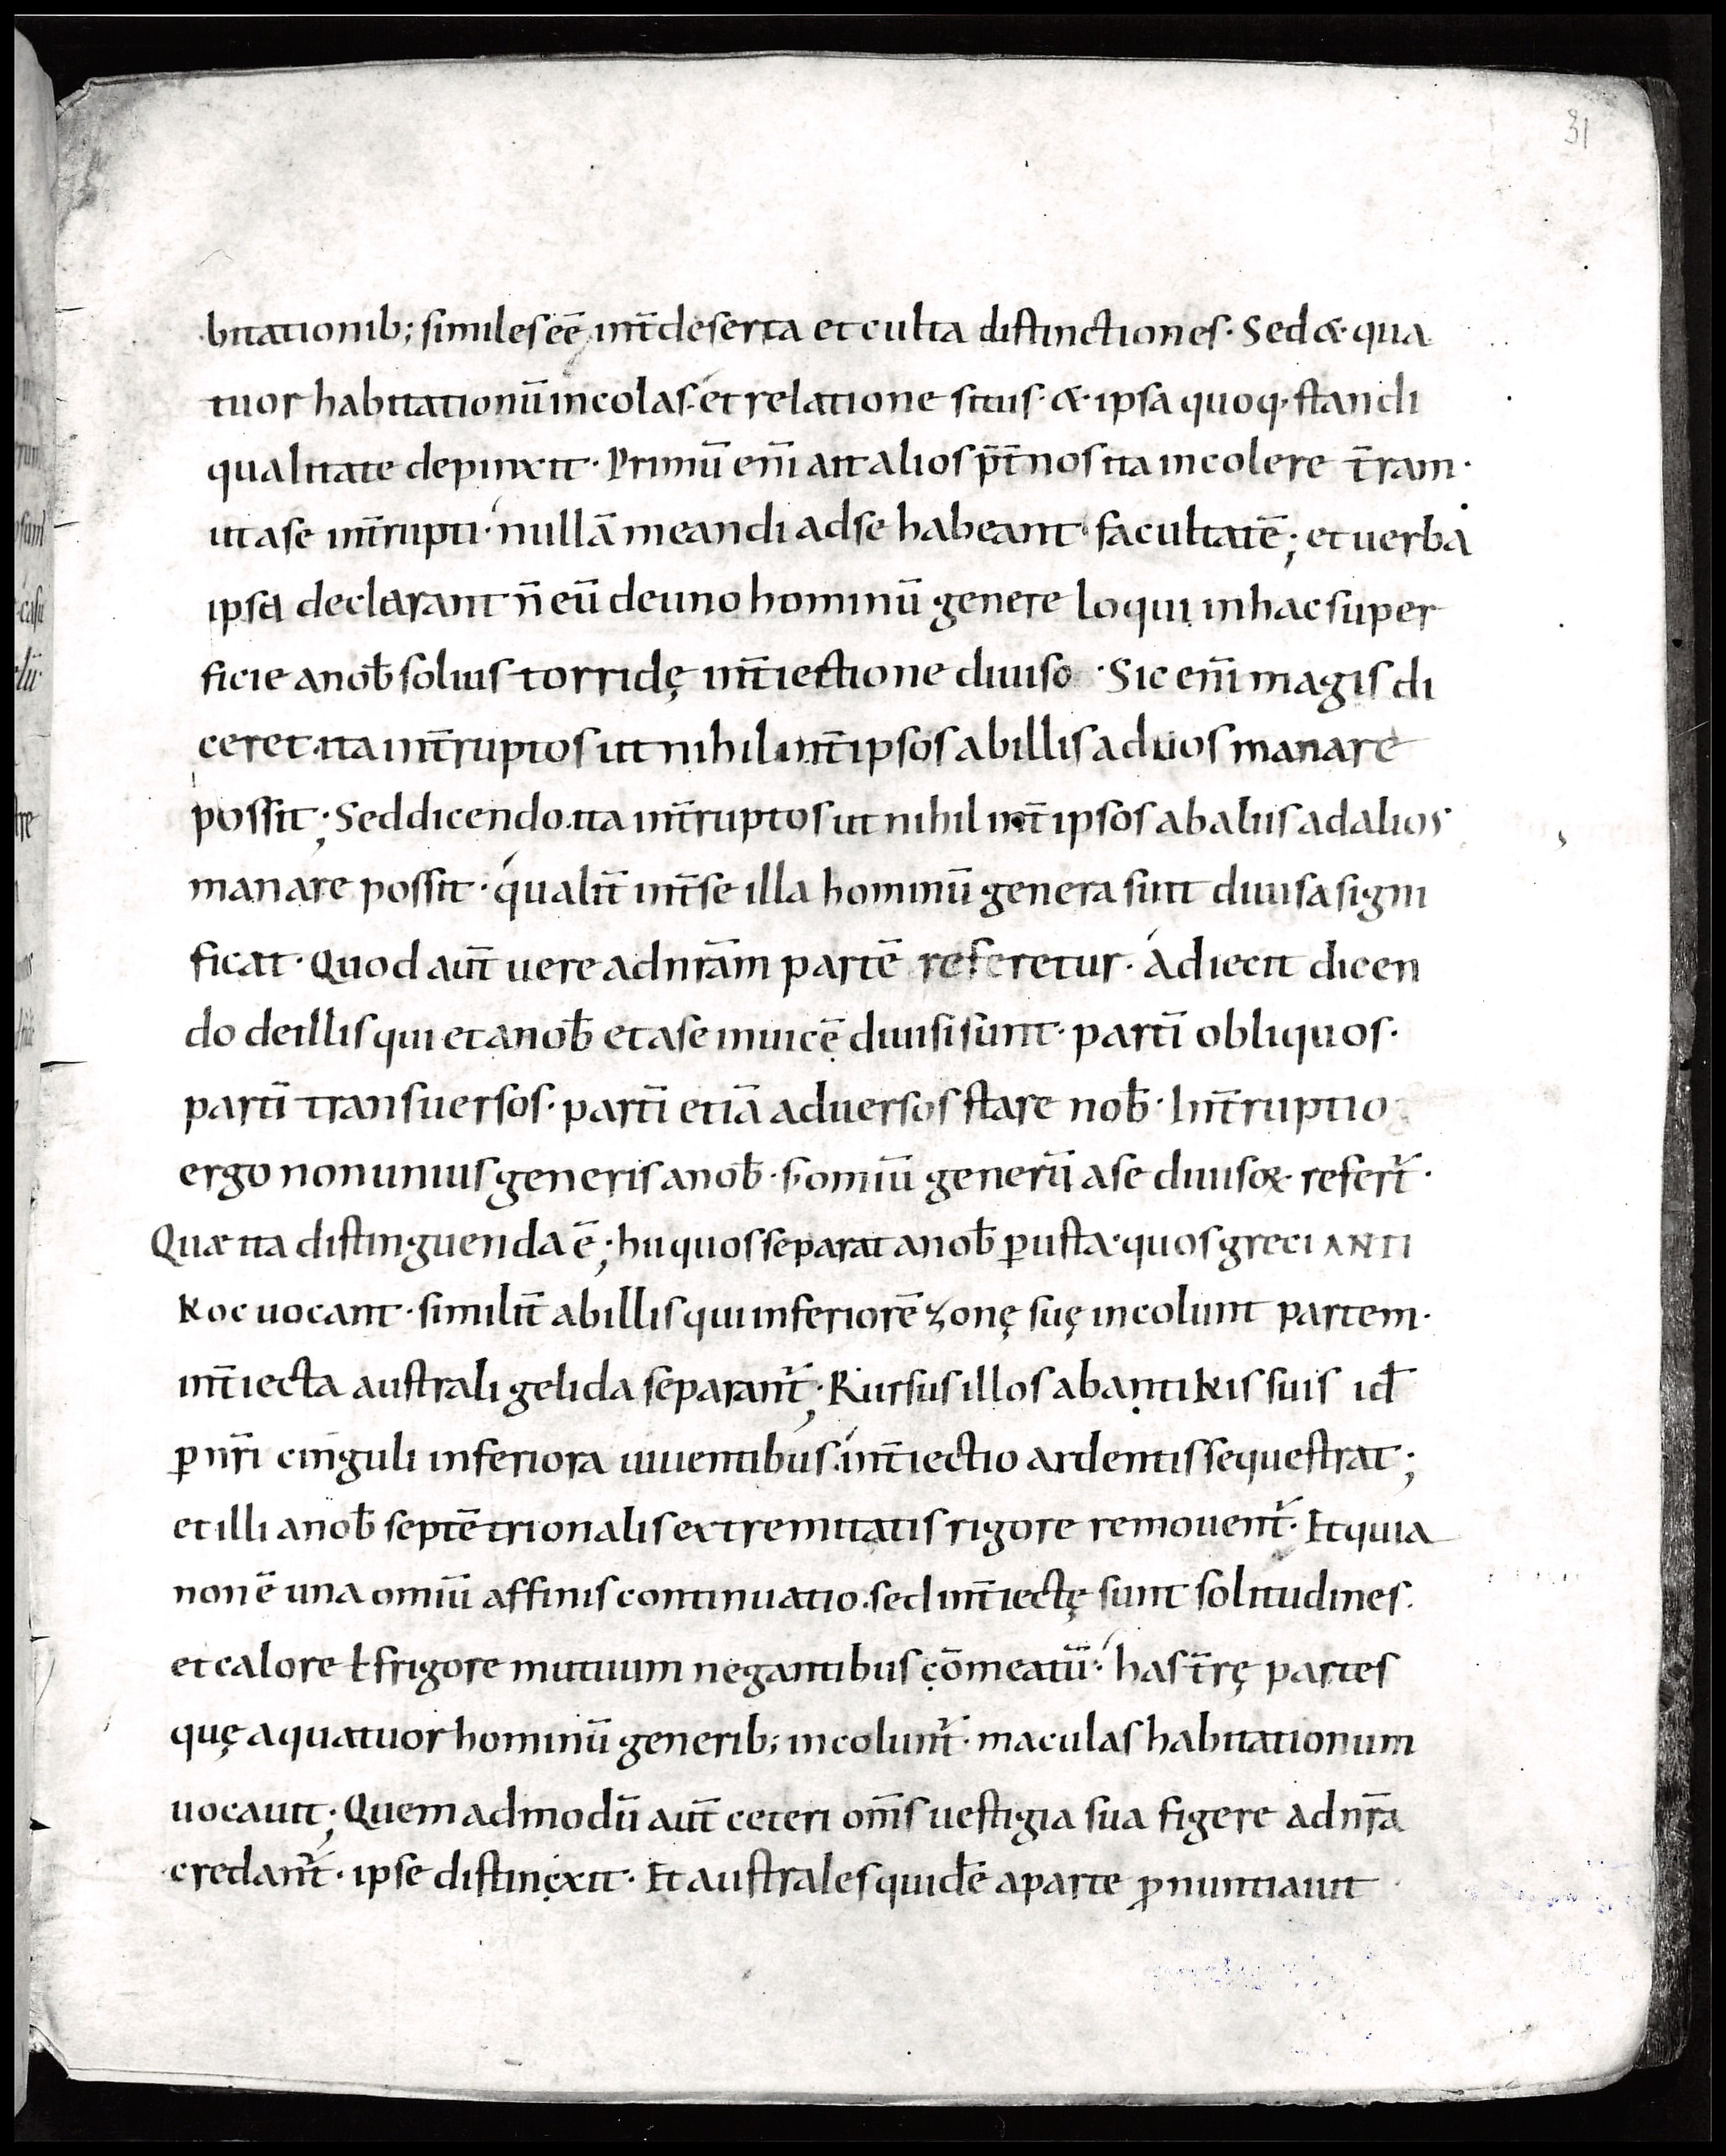 31
bitationib; similes eē int̄ deserta et culta distinctiones· Sed &· qua
tuor habitationū incolas· et relatione situs· &· ipsa quoq· standi
qualitate depinxit· Primū eni̅ ait alios p̄t̄ nos ita incolere t̄ram·
ut a se int̄rupti· nullā meandi ad se habeant facultatē; et uerba
ipsa declarant n̄ eū de uno hominū genere loqui in hac super
ficie a nob̄ solius torridę int̄iectione diuiso· Sic eni̅ magis di
ceret· ita int̄ruptos ut nihil int̄ ipsos ab illis ad uos manare
possit; Sed dicendo· ita int̄ruptos ut nihil int̄ ipsos ab aliis ad alios
manare possit· qualit̄ int̄ se illa hominū genera sint diuisa signi
ficat· Quod aut̄ uere ad nr̄am partē referetur· adiecit dicen
do de illis qui et a nob̄ et a se inuicē diuisi sunt· parti̅ obliquos·
parti̅ transuersos· parti̅ etiā aduersos stare nob̄· Int̄ruptio
ergo non unius generis a nob̄· s· omiū generū a se diuisoꝝ· refert᷑·
Quæ ita distinguenda ē; hii quos separat a nob̄ ꝑusta· quos greci ANTI
Koc uocant· similit̄ ab illis qui inferiorē zonę suę incolunt partem·
int̄iecta australi gelida separant᷑; Rursus illos ab antiKis suis id̄
ꝑ nr̄i cinguli inferiora uiuentibus· int̄iectio ardentis sequestrat;
et illi a nob̄ septētrionalis extremitatis rigore remouent᷑· Et quia
non ē una omiū affinis continuatio· sed int̄iectę sunt solitudines·
et calore ł frigore mutuum negantibus cōmeatū· has t̄rę partes
quę a quatuor hominū generib; incolunt᷑· maculas habitationum
uocauit; Quemadmodū aut̄ ceteri om̄s uestigia sua figere ad nr̄a
credant᷑· ipse distincxit· Et australes quidē aparte ꝓnuntiauit